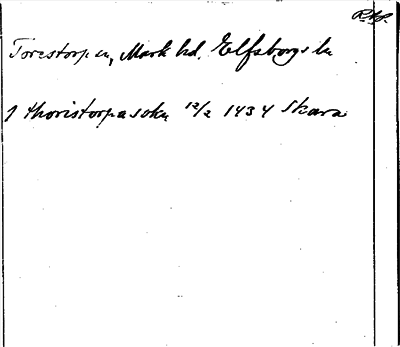 R.A.P.
Torestorp sn, Mark hd. Elfsborgs ln
J thoristorpa sokn 12/2 1434 Skara